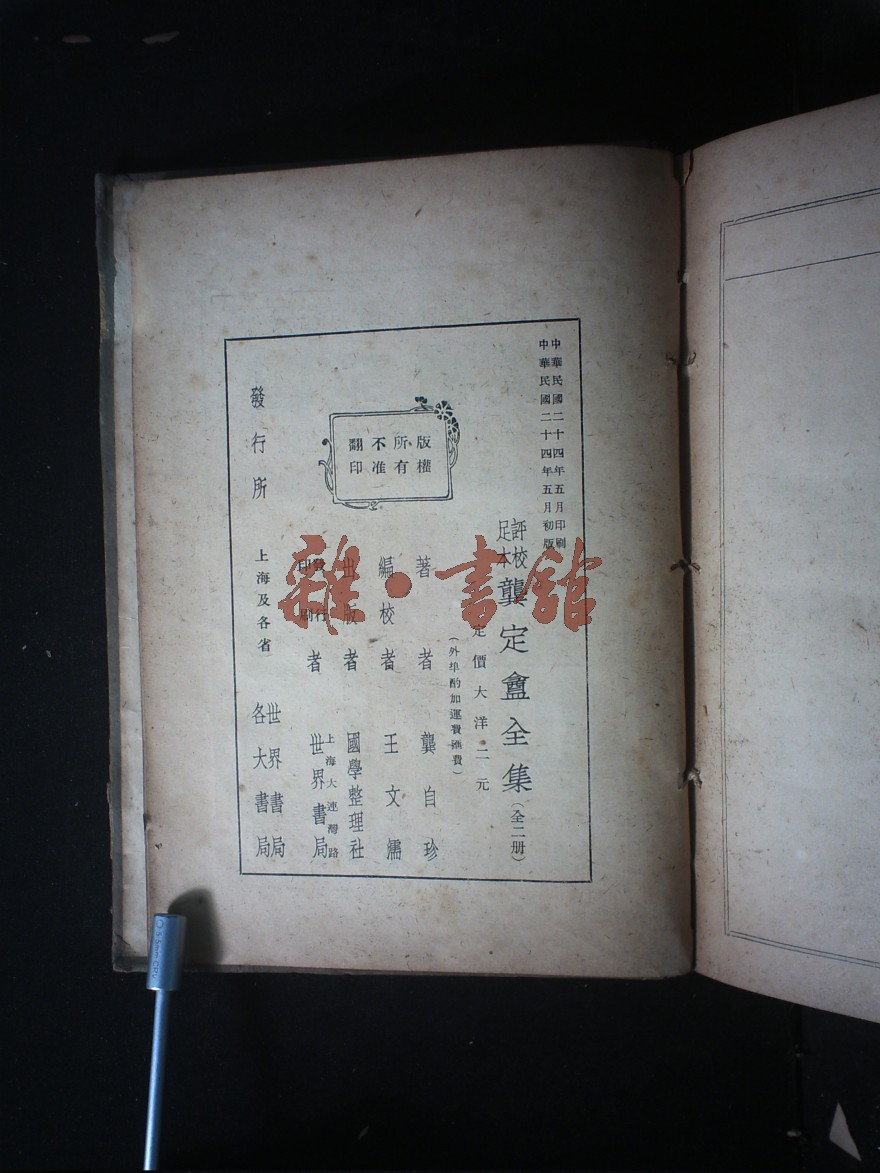 中華民國二十四年五月印刷
中華民國二十四年五月初版
評校
足本
龔定盦全集(全二册)
定價大洋二元
(外埠酌加運費匯費)
版權
所有
不准
翻印
著者 龔自珍
編校者 王文濡
出版者 國學整理社
發行
印刷
者
上海大連灣路
世界書局
發行所 上海及各省
世界書局
各大書局
雜·書館